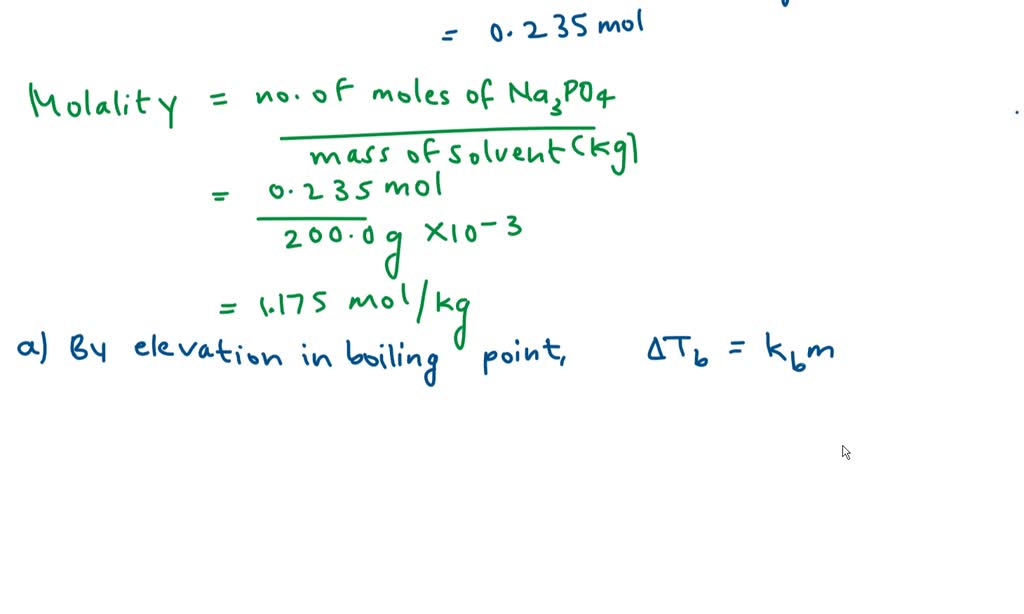 = 0.235 mol
Molality = no. of moles of Na3PO4
mass of solvent (kg)
= 0.235 mol
200.0g ×10-3
= 1.175 mol/kg
a) By elevation in boiling point, ΔTb = kbm